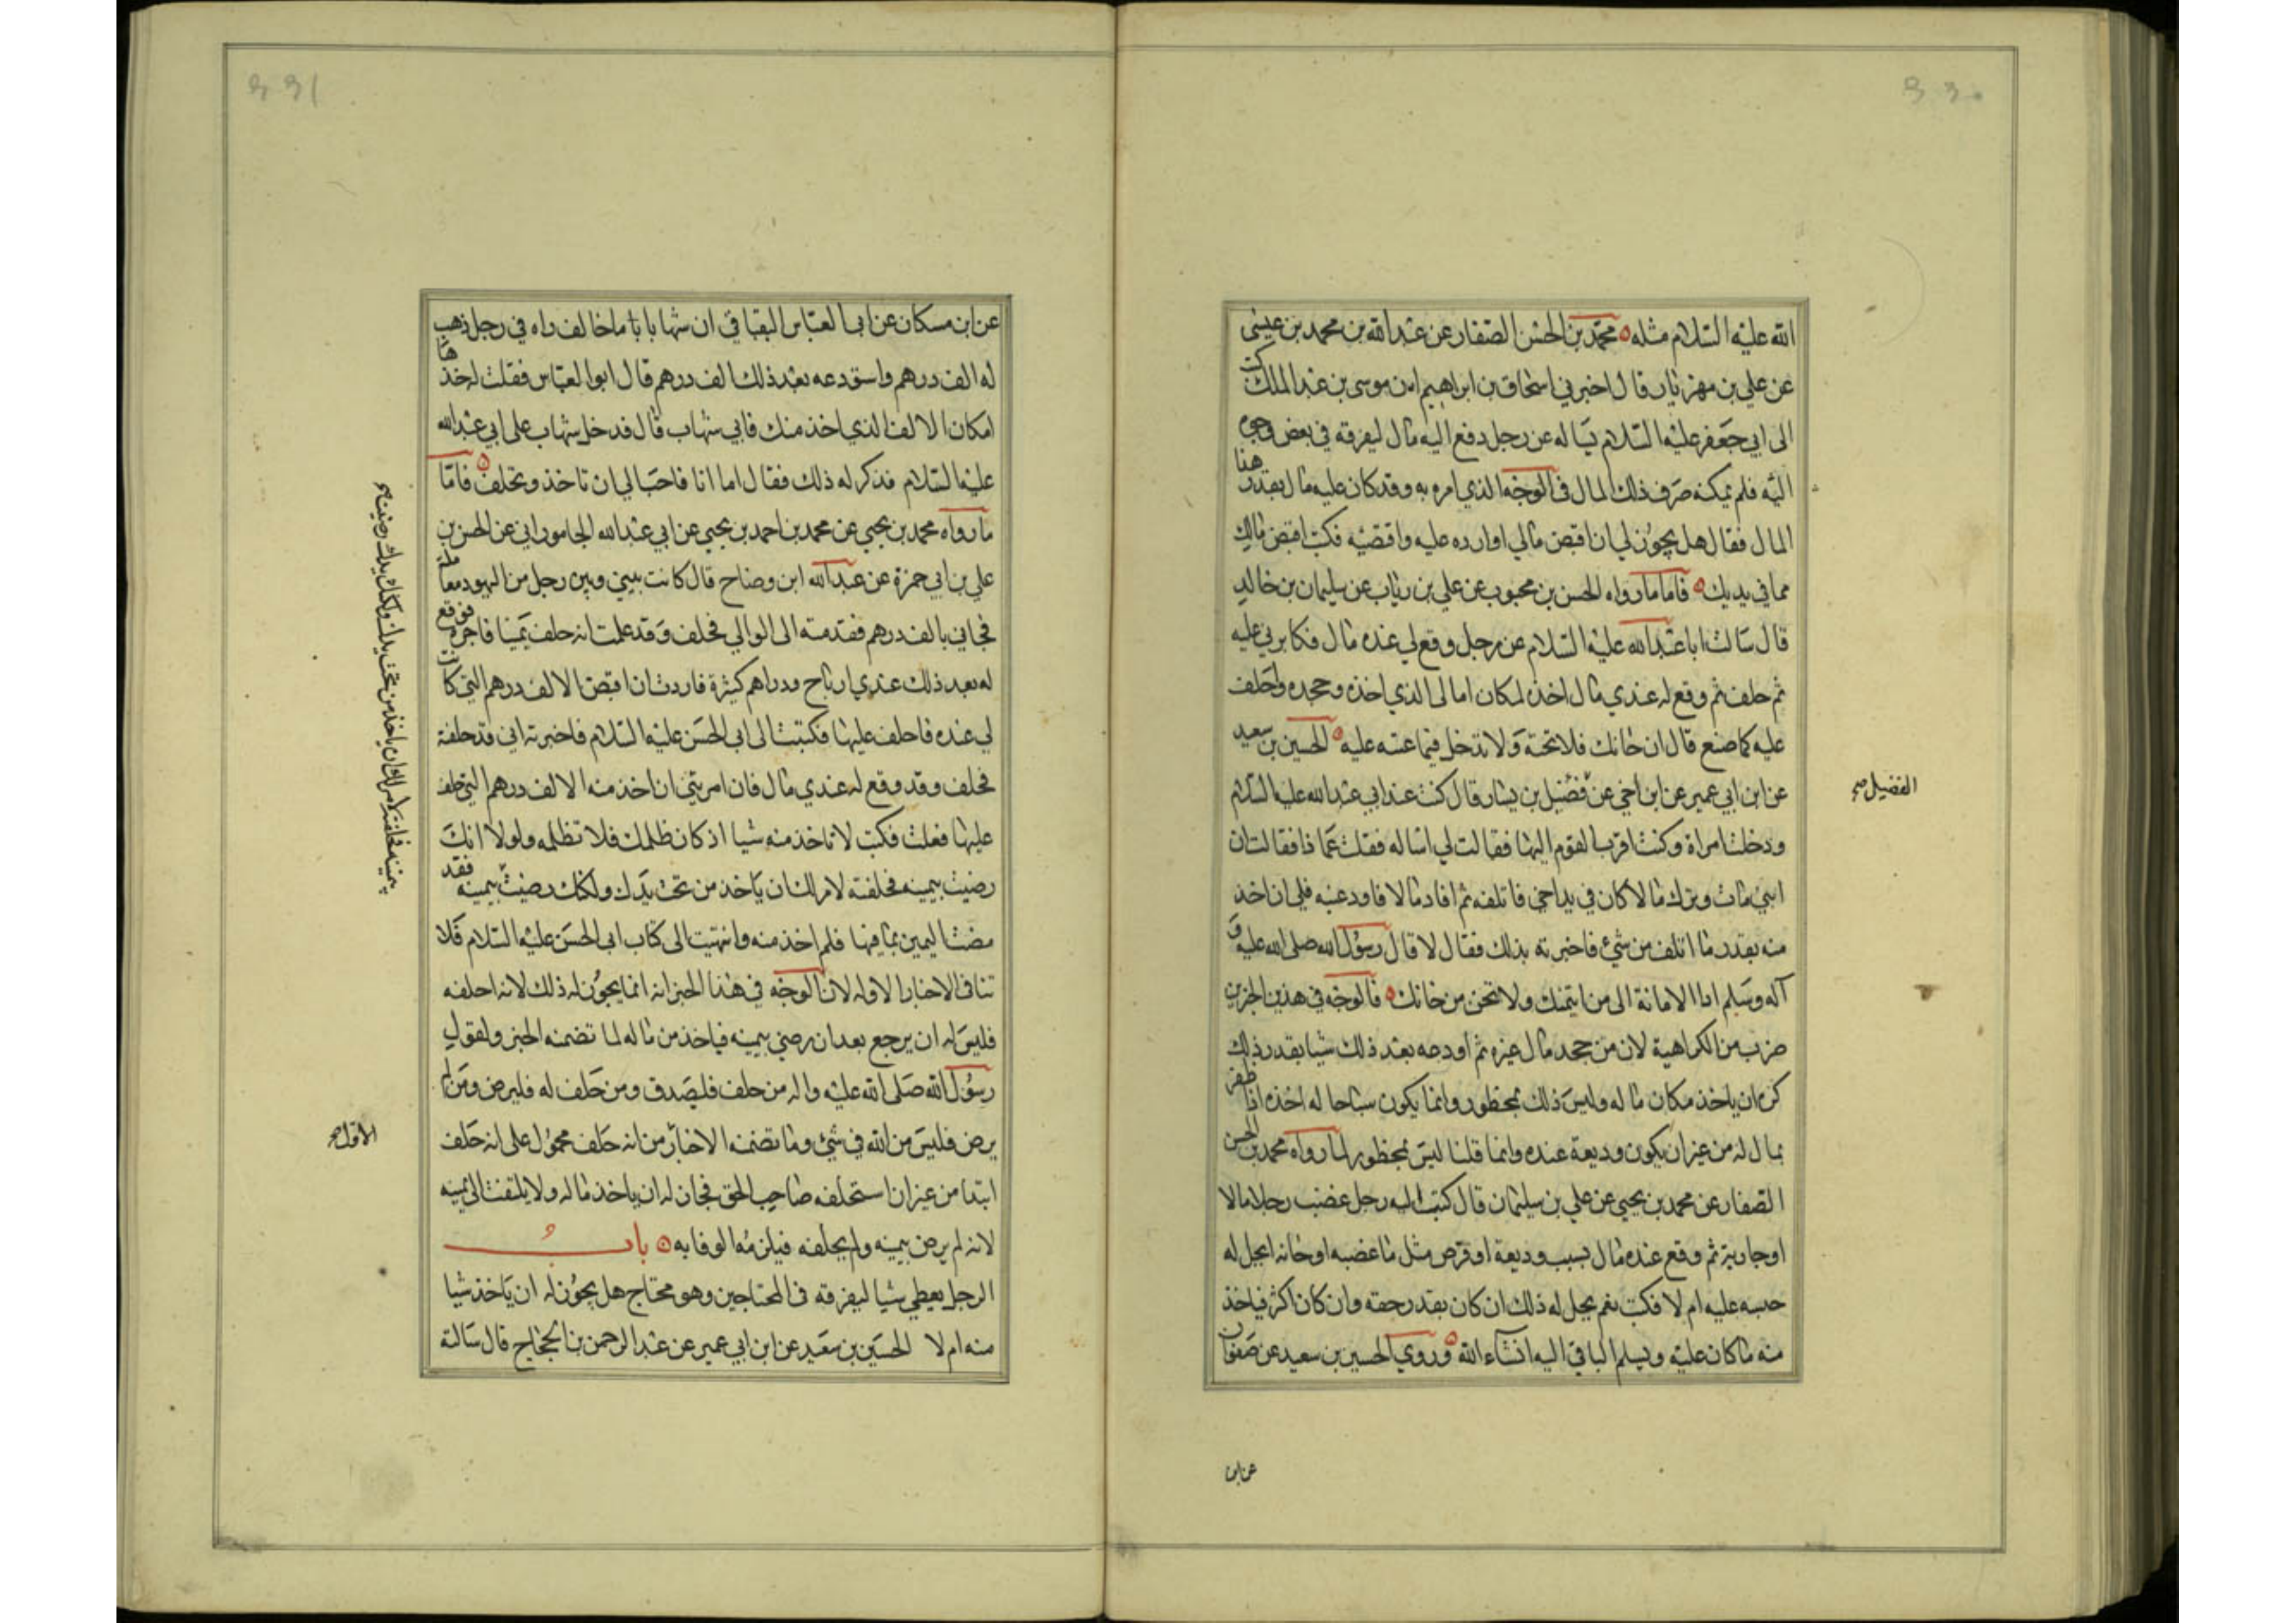 ٤٤٠
الله عليه السلام مثله محمد بن الحسن الصفار عن عبدالله بن محمد بن عيسى
عن علي بن مهزيار قال اخبرني اسحاق بن ابراهيم ان موسى بن عبدالملك كتب
الى ابي جعفر عليه السلام يساله عن رجل دفع اليه مال ليفرقه في بعض وجوه
اليه فلم يمكنه صرف ذلك المال في الوجه الذي امره به وقد كان عليه مال بقدر هذا
المال فقال هل يجوز لي ان اقبض مالي او ارده عليه واقتضيه فكتب اقبض مالك
مما في يديك فاما ما رواه الحسن بن محبوب عن علي بن رئاب عن سليمان بن خالد
قال سالت ابا عبدالله عليه السلام عن رجل وقع لي عنده مال فكابرني عليه
ثم حلف ثم وقع له عندي مال اخذه لمكان مالي الذي اخذه وجحده واحلف
عليه كما صنع قال ان خانك فلا تخنه ولا تدخل فيما عبته عليه الحسين بن سعيد
عن ابن ابي عمير عن ابن اخي عن فضيل بن يسار قال كنت عند ابي عبدالله عليه السلام
الفضيل صح
ودخلت امراة وكنت اقرب القوم اليها فقالت لي اساله فقلت عما ذا فقالت ان
ابني مات وترك مالا كان في يد اخي فاتلفه ثم افاد مالا فاودعنيه فلي ان اخذ
منه بقدر ما اتلف من شيء فاخبرته بذلك فقال لا قال رسول الله صلى الله عليه و
آله وسلم اد الامانة الى من ايتمنك ولا تخن من خانك فالوجه في هذين الخبرين
ضرب من الكراهية لان من جحد مال غيره ثم اودعه بعد ذلك شيا بقدر ذلك
كره ان ياخذ مكان ماله وليس ذلك بمحظور وانما يكون مباحا له اخذه اذا ظفر
بمال له من غير ان يكون وديعة عنده وانما قلنا ليس بمحظور لما رواه محمد بن الحسن
الصفار عن محمد بن يحيى عن علي بن سليمان قال كتب اليه رجل غضب رجلا مالا
او جارية ثم وقع عنده مال بسبب وديعة او قرض مثل ما غصبه او خانه ايحل له
حبسه عليه ام لا فكتب نعم يحل له ذلك ان كان بقدر حقه وان كان اكثر فياخذ
منه ما كان عليه ويسلم الباقي اليه انشاء الله وروي الحسين بن سعيد عن صفوان
عن ابن
٤٤١
عن ابن مسكان عن ابي العباس البقباقي ان شهابا باماخالف راه في رجل ذهب
له الف درهم واستودعه بعد ذلك الف درهم قال ابو العباس فقلت له خذها
مكان الالف الذي اخذ منك فابى شهاب قال فدخل شهاب على ابي عبدالله
عليه السلام فذكر له ذلك فقال اما انا فاحب الي ان تاخذ وتحلف فاما
ما رواه محمد بن يحيى عن محمد بن احمد بن يحيى عن ابي عبدالله الجاموراني عن الحسن بن
علي بن ابي حمزة عن عبدالله ابن وضاح قال كانت بيني وبين رجل من اليهود معاملة
فخانني بالف درهم فقدمته الى الوالي فحلف وقد علمت انه حلف يمينا فاجرة فوقع
له بعد ذلك عندي ارباح ودراهم كثيرة فاردت ان اقبض الالف درهم التي كانت
لي عنده فاحلف عليها فكتبت الى ابي الحسن عليه السلام فاخبرته اني قد حلفته
فحلف وقد وقع له عندي مال فان امرتني ان اخذ منه الالف درهم التي حلف
عليها فعلت فكتب لا تاخذ منه شيا اذ كان ظلمك فلا تظلمه ولولا انك
رضيت بيمينه فحلفته لامرتك ان ياخذ من تحت يدك ولكنك رضيت بيمينه فقد
يمينه فحلفته لامرتك ان ياخذ من تحت يدك ولكنك رضيت صح
مضت اليمين بما فيها فلم اخذ منه وانتهيت الى كتاب ابي الحسن عليه السلام فلا
تنافي الاخبار الاوله لان الوجه في هذا الخبر انه انما يجوز له ذلك لانه احلفه
فليس له ان يرجع بعد ان رضي بيمينه فياخذ من ماله لما تضمنه الخبر ولقول
رسول الله صلى الله عليه واله من حلف فليصدق ومن حلف له فليرض ومن لم
يرض فليس من الله في شيء وما تضمنه الاخبار من انه حلف محمول على انه حلف
الاول صح
ابتدا من غير ان استحلفه صاحب الحق فجاز له ان ياخذ ماله ولا يلتفت الى يمينه
لانه لم يرض بيمينه ولم يحلفه فيلزمه الوفا به باب
الرجل يعطي شيا ليفرقه في المحتاجين وهو محتاج هل يجوز له ان ياخذ شيا
منه ام لا الحسين بن سعيد عن ابن ابي عمير عن عبدالرحمن بن الحجاج قال سالته